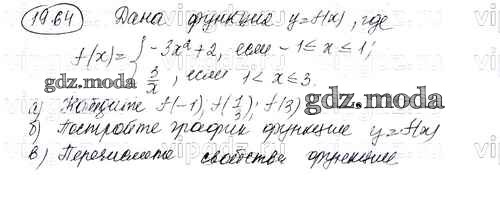 19.64 Дана функция y=f(x), где
f(x)={ -3x²+2, если -1≤x≤1;
3/x, если 1<x≤3.
gdz.moda
а) Найдите f(-1), f(1/3), f(3)
gdz.moda
б) Постройте график функции y=f(x)
в) Перечислите свойства функции